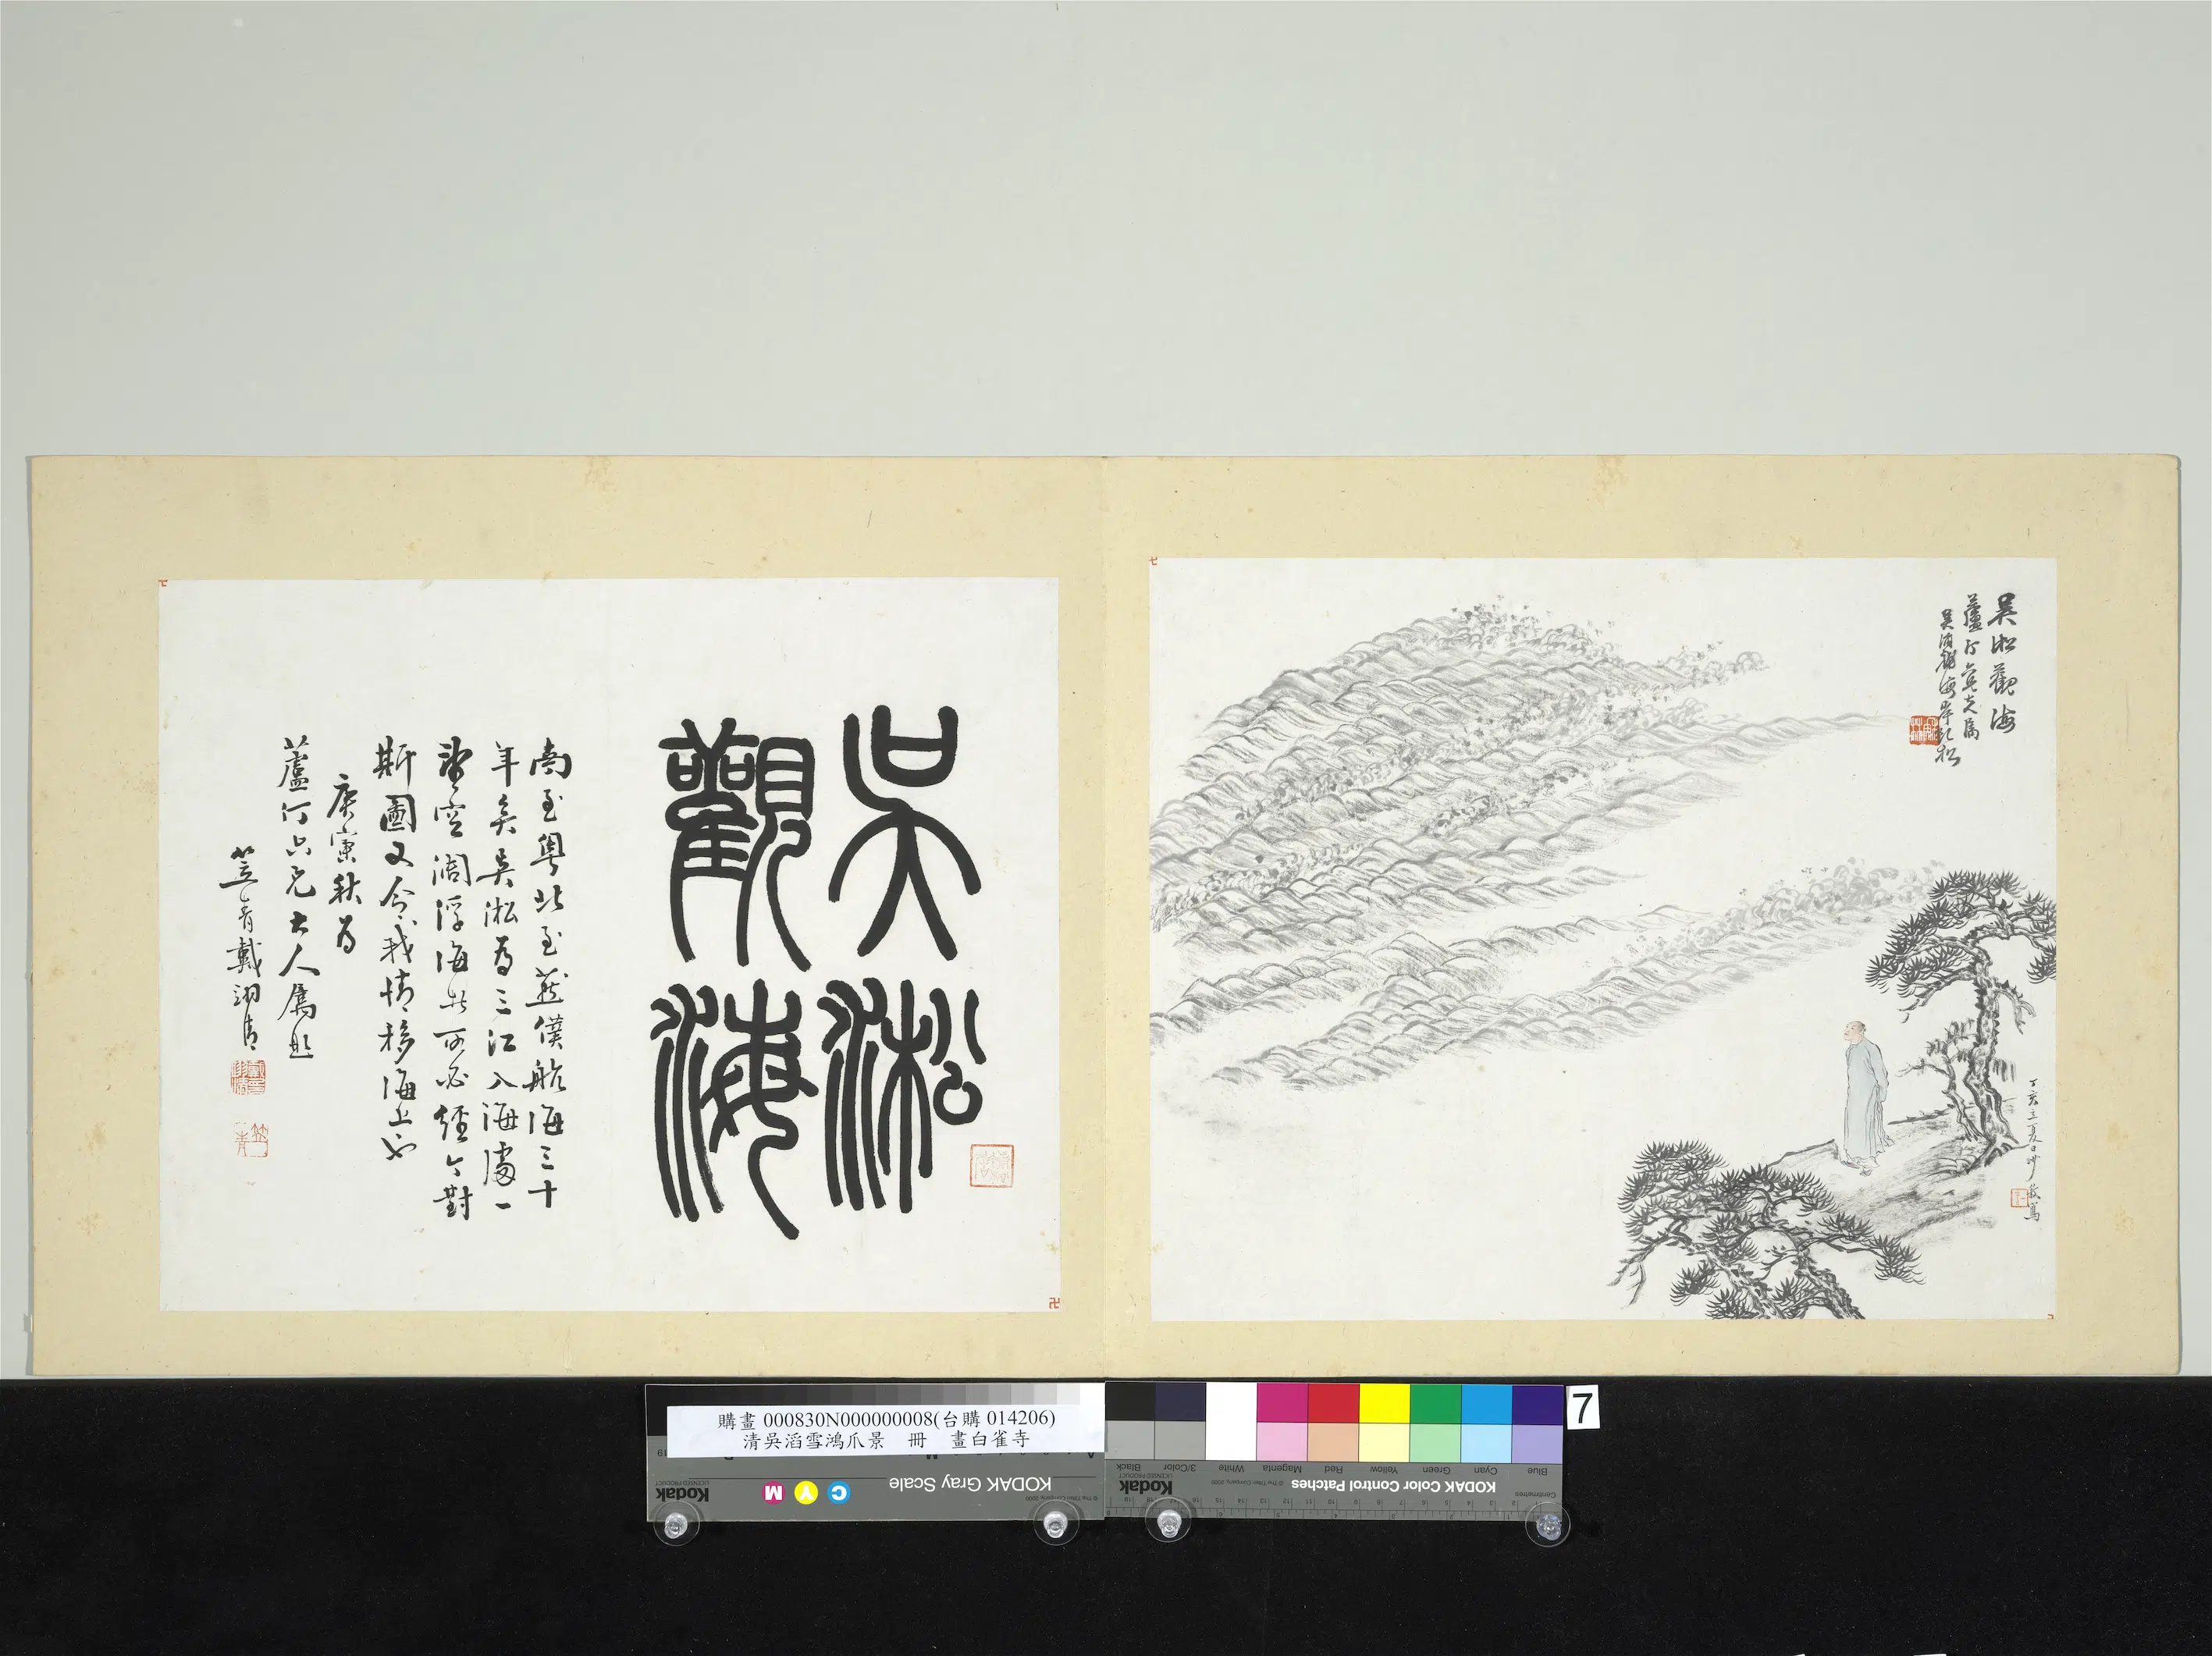 吳淞觀海
蘆汀
丁亥三夏日
吳淞
觀海
南至粵北至燕僕航海三十
年矣吳淞為三江入海處一
望空闊浮海者所必經今對
斯圖又令我情移海上也
庚寅秋為
蘆汀六兄大人屬題
笠青戴翊清
購畫 000830N000000008(台購 014206)
清吳滔雪鴻爪景 冊 畫白雀寺
7
KODAK Gray Scale
C Y M
Kodak
LICENSED PRODUCT
© The Tiffen Company, 2000
KODAK Color Control Patches
Kodak
LICENSED PRODUCT
© The Tiffen Company, 2000
Centimetres
Blue Cyan Green Yellow Red Magenta White 3/Color Black